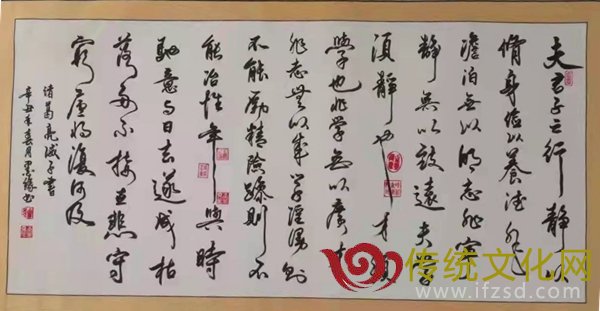 夫君子之行静以
修身俭以养德非
澹泊无以明志非宁
静无以致远夫学
须静也才须
学也非学无以广才
非志无以成学淫漫则
不能励精险躁则不
能冶性年与时
驰意与日去遂成枯
落多不接世悲守
穷庐将复何及
诸葛亮诫子书
辛丑年春月
传统文化网
www.ifzsd.com